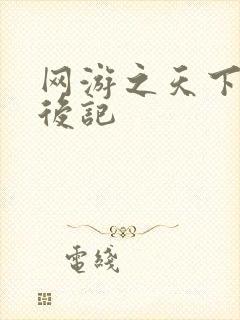 网游之天下
後記
電綫